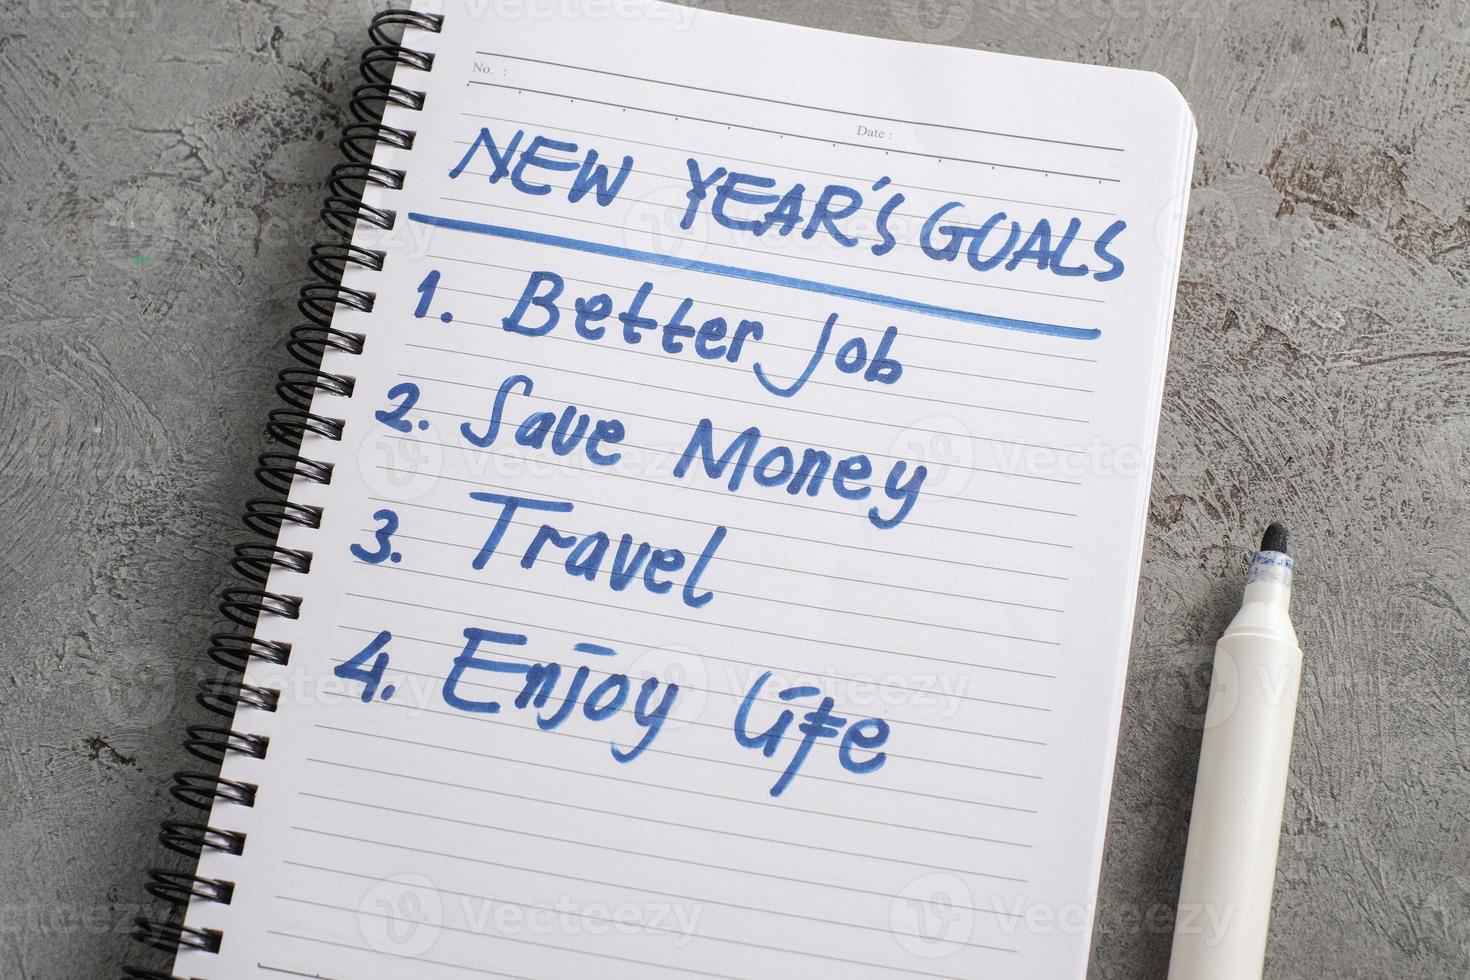 No. :
Date :
NEW YEAR'S GOALS
1. Better Job
2. Save Money
3. Travel
4. Enjoy Life
Vecteezy